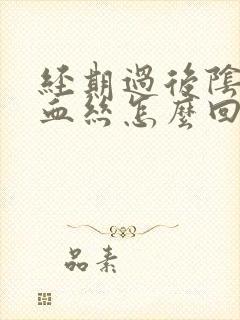 經期過後陰
血絲怎麼回
品素